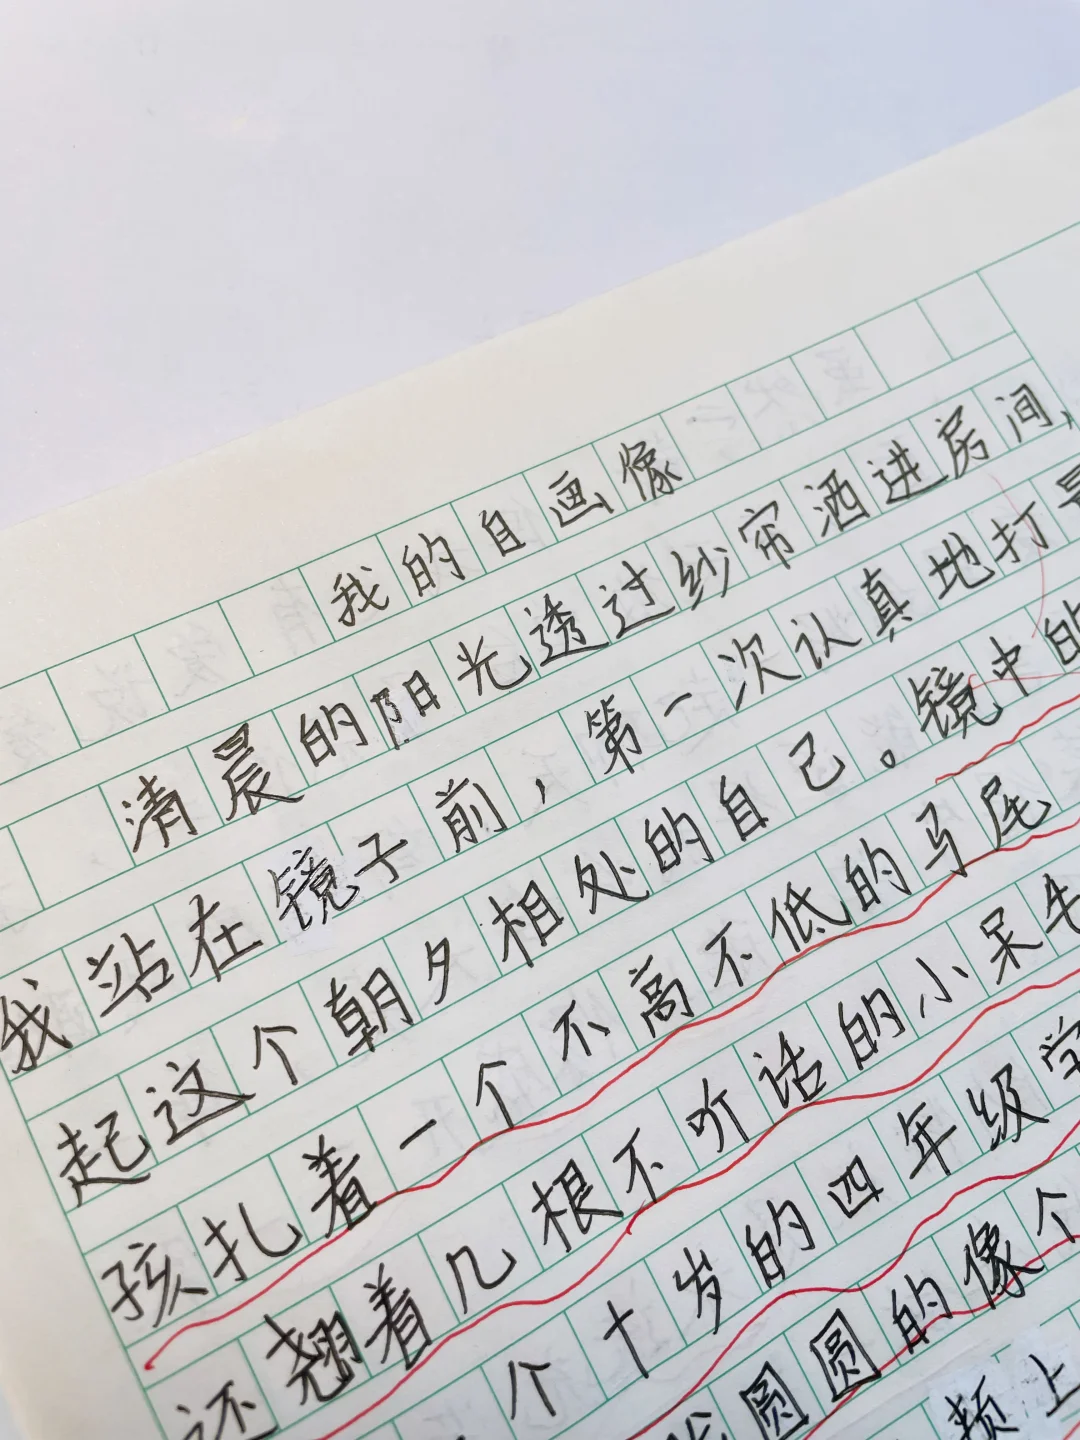 我的自画像
清晨的阳光透过纱帘洒进房间，
我站在镜子前，第一次认真地打
起这个朝夕相处的自己。镜中的
孩扎着一个不高不低的马尾
还翘着几根不听话的小呆毛
个十岁的四年级学
圆圆的像个
频上